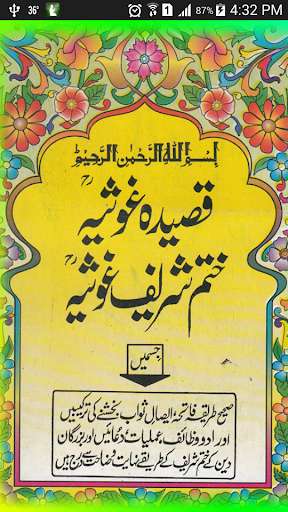 36°
87% 4:32 PM
بسم الله الرحمن الرحيم
قصیدہ غوثیہ
ختم شریف غوثیہ
جسمیں
صحیح طریقہ فاتحہ ایصال ثواب بخشنے کی ترکیبیں
اور ادو وظائف عملیات دعائیں اور بزرگان
دین کے ختم شریف کے طریقے نہایت وضاحت سے درج ہیں